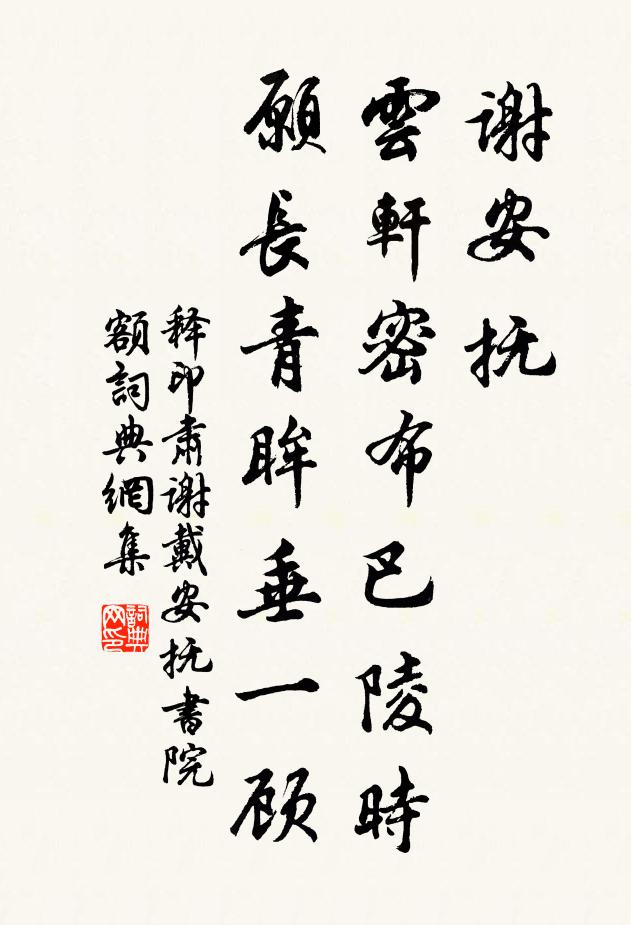 谢安抚
雲軒密布巴陵時
願長青眸垂一顾
释印肃謝戴安抚書院
額詞典網集
詞典网印